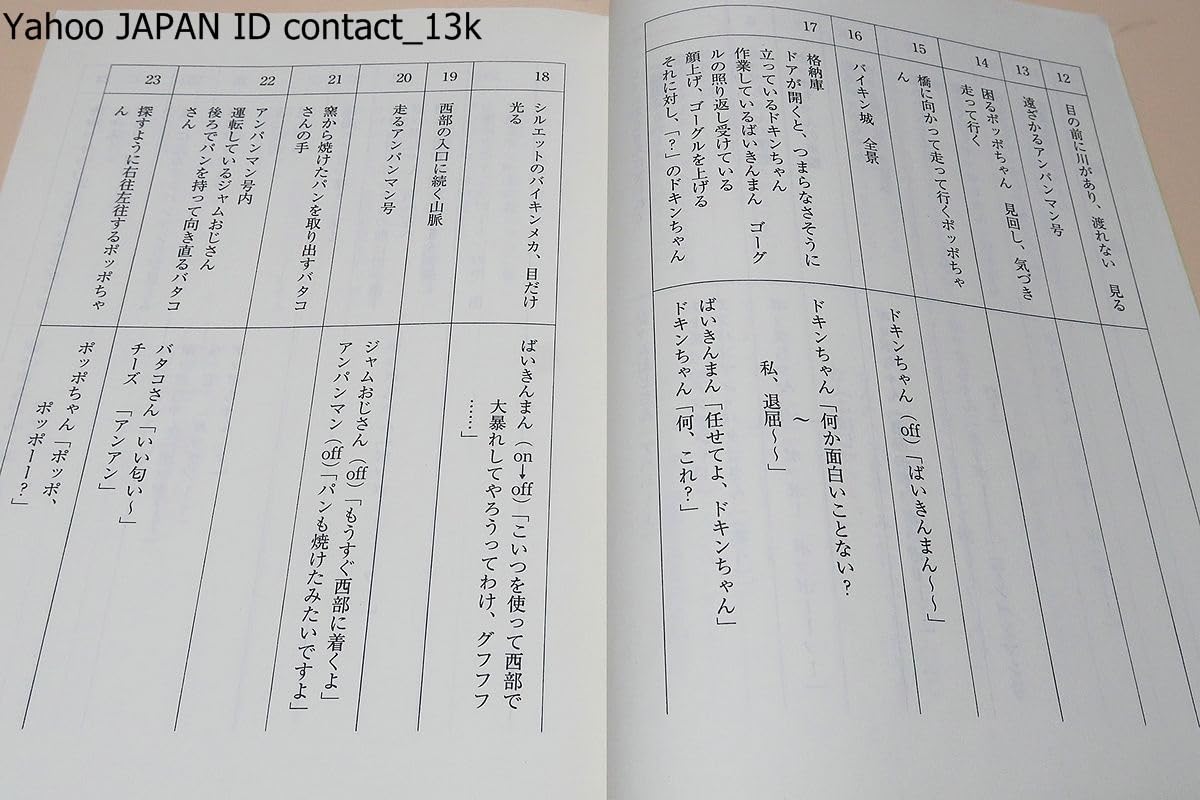 Yahoo JAPAN ID contact_13k
12
目の前に川があり、渡れない　見る
13
遠ざかるアンパンマン号
14
困るポッポちゃん　見回し、気づき
走って行く
15
橋に向かって走って行くポッポちゃ
ん
ドキンちゃん（off）「ばいきんまん〜〜」
16
バイキン城　全景
17
格納庫
ドアが開くと、つまらなさそうに
立っているドキンちゃん
作業しているばいきんまん　ゴーグ
ルの照り返し受けている
顔上げ、ゴーグルを上げる
それに対し、「？」のドキンちゃん
ドキンちゃん「何か面白いことない？
〜
私、退屈〜〜」
ばいきんまん「任せてよ、ドキンちゃん」
ドキンちゃん「何、これ？」
18
シルエットのバイキンメカ、目だけ
光る
ばいきんまん（on→off）「こいつを使って西部で
大暴れしてやろうってわけ、グフフフ
……」
19
西部の入口に続く山脈
20
走るアンパンマン号
ジャムおじさん（off）「もうすぐ西部に着くよ」
アンパンマン（off）「パンも焼けたみたいですよ」
21
窯から焼けたパンを取り出すバタコ
さんの手
22
アンパンマン号内
運転しているジャムおじさん
後ろでパンを持って向き直るバタコ
さん
バタコさん「いい匂い〜」
チーズ　「アンアン」
23
探すように右往左往するポッポちゃ
ん
ポッポちゃん「ポッポ、
ポッポーー？」